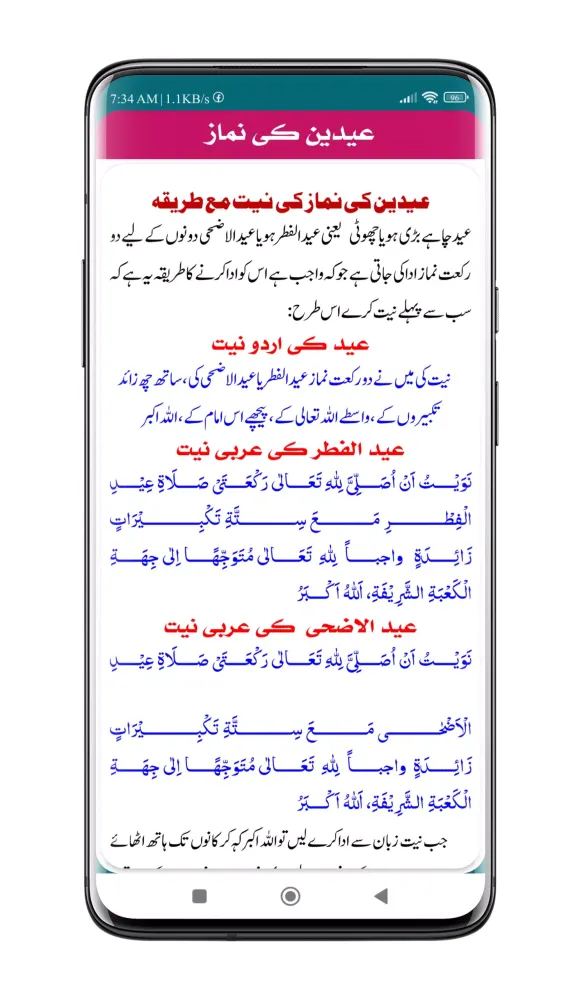 7:34 AM | 1.1KB/s
96
عیدین کی نماز
عیدین کی نماز کی نیت مع طریقہ
عید چاہے بڑی ہو یا چھوٹی یعنی عید الفطر ہو یا عید الاضحی دونوں کے لیے دو
رکعت نماز ادا کی جاتی ہے جو کہ واجب ہے اس کو ادا کرنے کا طریقہ یہ ہے کہ
سب سے پہلے نیت کرے اس طرح:
عید کی اردو نیت
نیت کی میں نے دو رکعت نماز عید الفطر یا عید الاضحی کی، ساتھ چھ زائد
تکبیروں کے، واسطے اللہ تعالی کے، پیچھے اس امام کے، اللہ اکبر
عید الفطر کی عربی نیت
نَوَیْتُ اَنْ اُصَلِّیَّ لِلہِ تَعَالٰی رَکْعَتَیْ صَلَاۃِ عِیْدِ
الْفِطْرِ مَعَ سِتَّةِ تَکْبِیْرَاتٍ
زَائِدَۃٍ واجباً لِلہِ تَعَالٰی مُتَوَجِّھًا اِلٰی جِھَةِ
الْکَعْبَةِ الشَّرِیْفَةِ، اَللہُ اَکْبَرُ
عید الاضحی کی عربی نیت
نَوَیْتُ اَنْ اُصَلِّیَّ لِلہِ تَعَالٰی رَکْعَتَیْ صَلَاۃِ عِیْدِ
الْاَضْحٰی مَعَ سِتَّةِ تَکْبِیْرَاتٍ
زَائِدَۃٍ واجباً لِلہِ تَعَالٰی مُتَوَجِّھًا اِلٰی جِھَةِ
الْکَعْبَةِ الشَّرِیْفَةِ، اَللہُ اَکْبَرُ
جب نیت زبان سے ادا کرے لیں تو اللہ اکبر کہہ کر کانوں تک ہاتھ اٹھائے